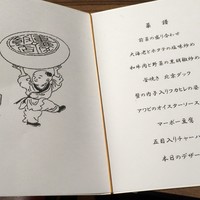 菜譜
前菜の盛り合わせ
大海老とホタテの塩味炒め
和牛肉と野菜の黒胡椒炒め
釜焼き 北京ダック
蟹の肉子入りフカヒレの姿
アワビのオイスターソース
マーボー豆腐
五目入りチャーハ
本日のデザー